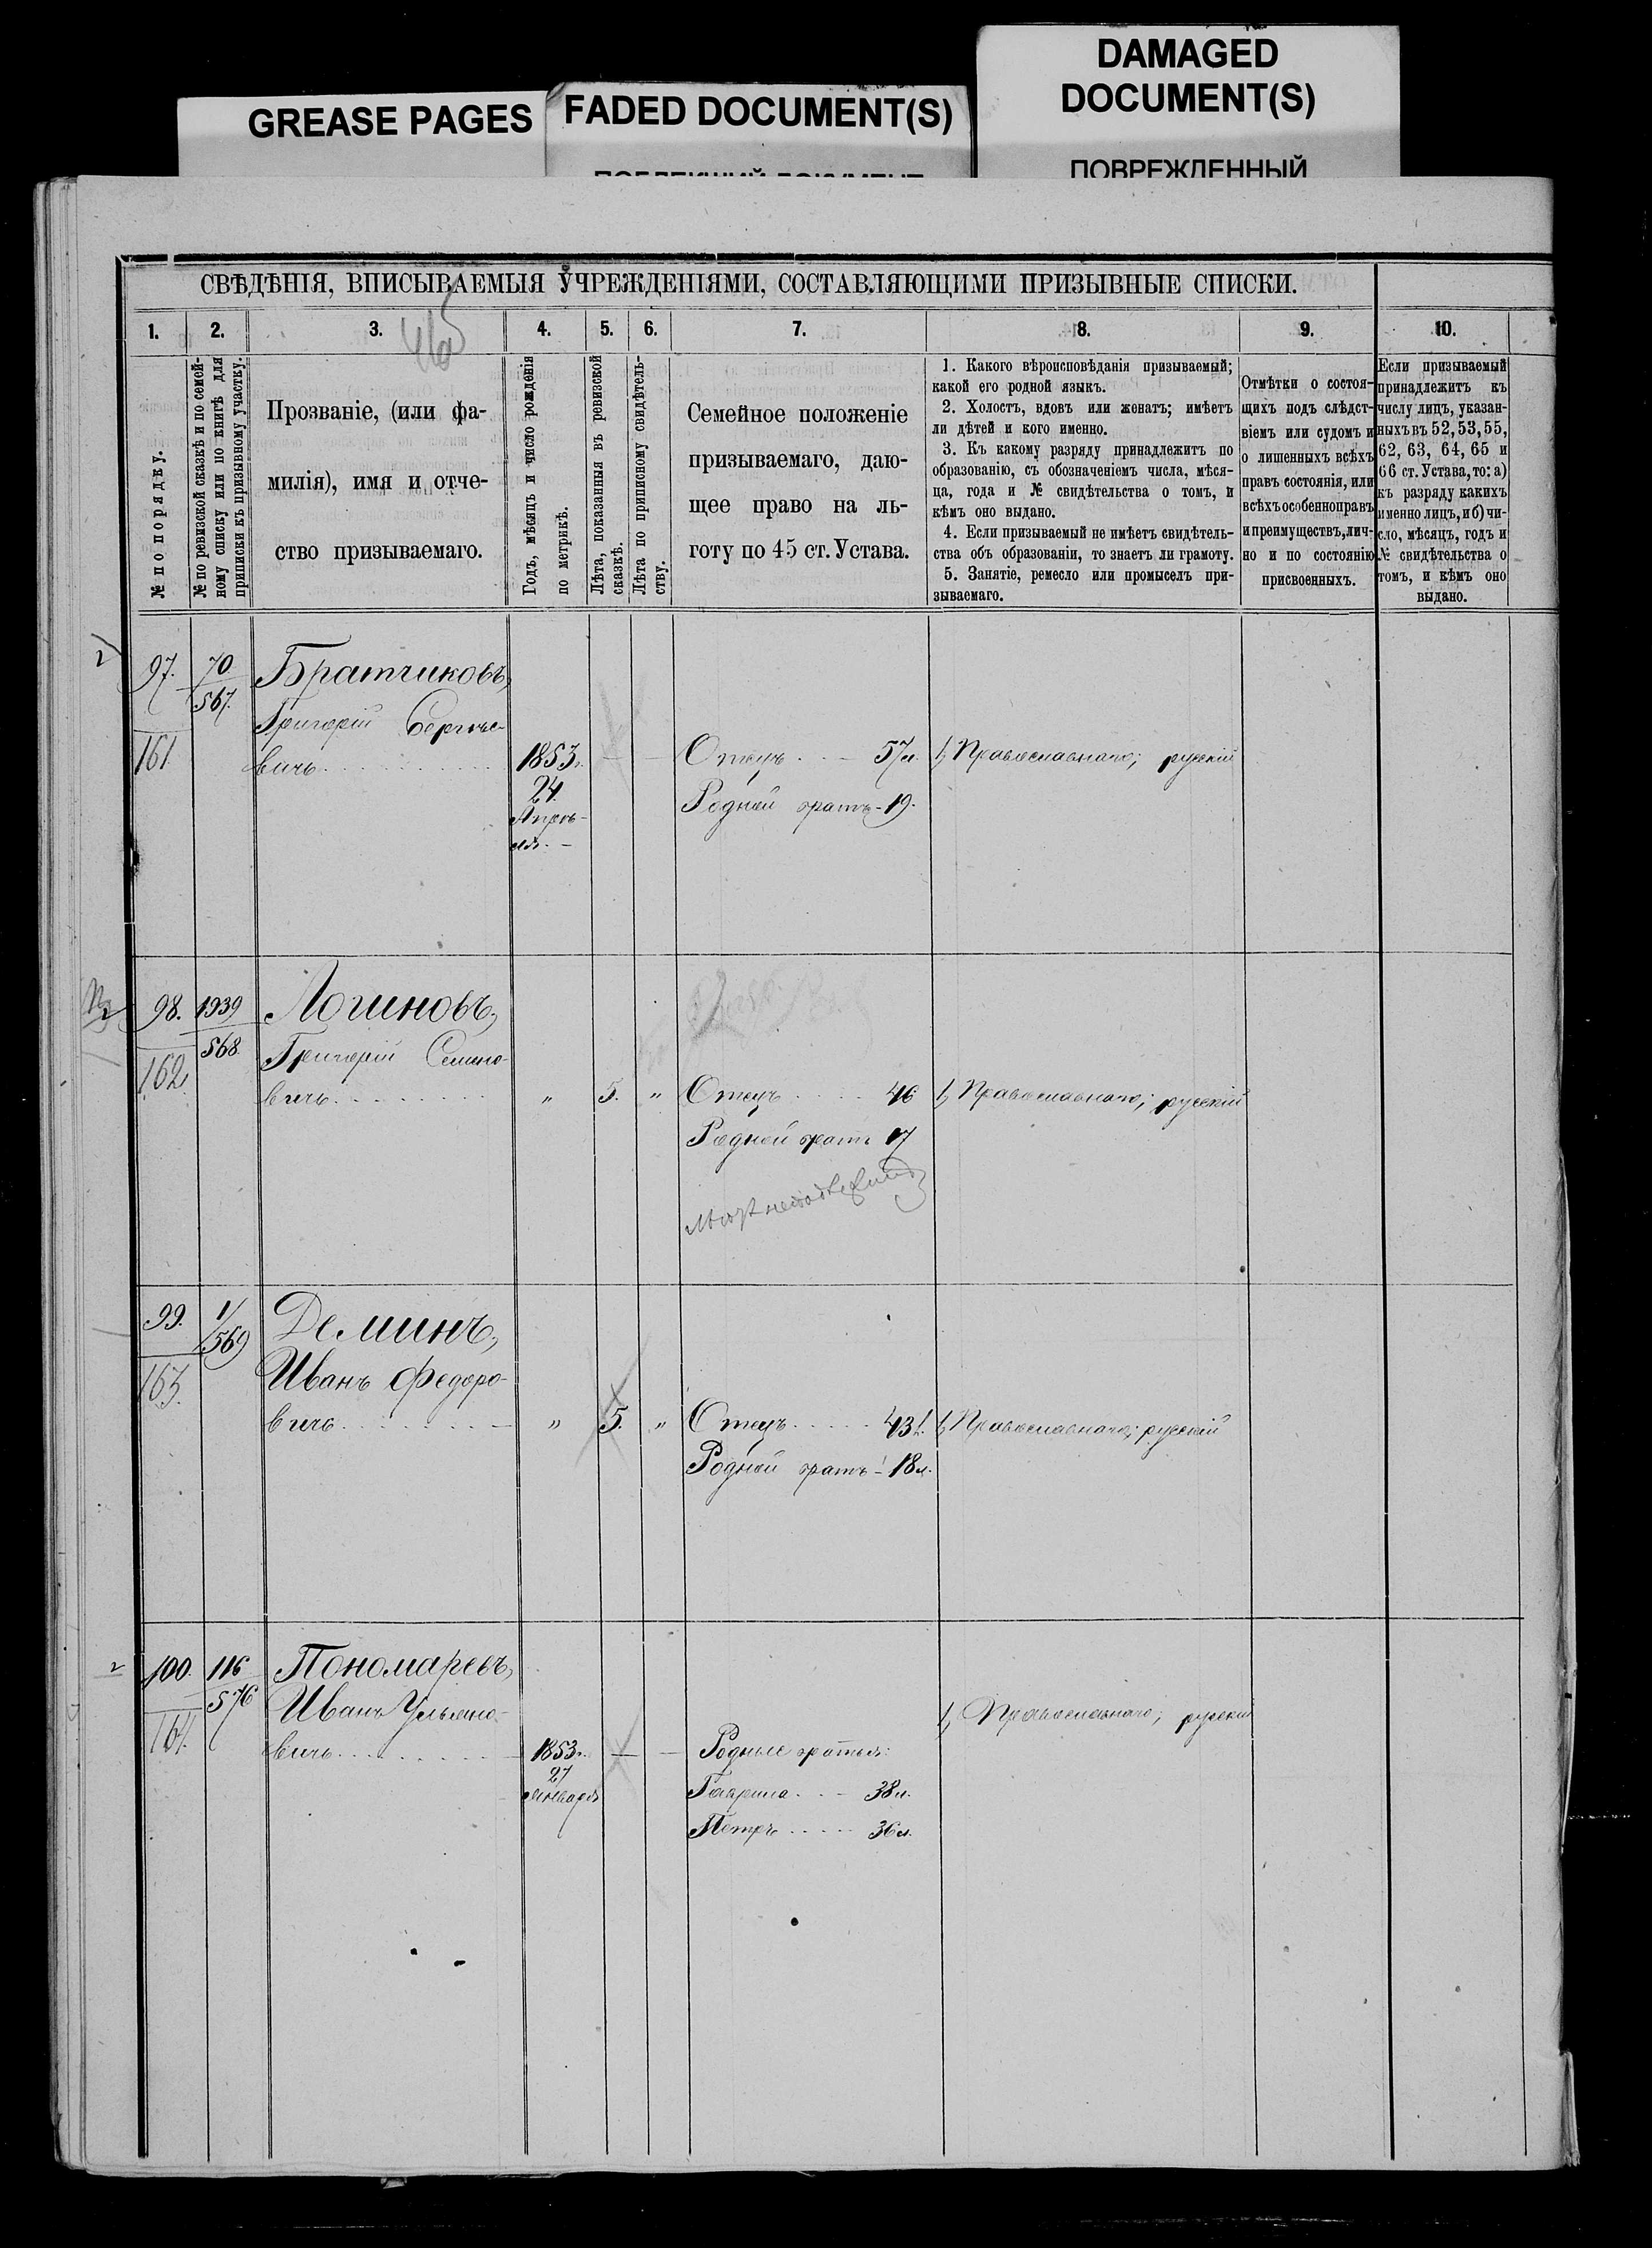 GREASE PAGES
FADED DOCUMENT(S)
DAMAGED
DOCUMENT(S)
ПОВРЕЖДЕННЫЙ
СВѢДѢНІЯ, ВПИСЫВАЕМЫЯ УЧРЕЖДЕНІЯМИ, СОСТАВЛЯЮЩИМИ ПРИЗЫВНЫЕ СПИСКИ.
1. 2. 3. 4. 5. 6. 7. 8. 9. 10.
№ по порядку.
№ по ревизской сказкѣ и по семей-
ному списку или по книгѣ для
приписки къ призывному участку.
Прозваніе, (или фа-
милія), имя и отче-
ство призываемаго.
Годъ, мѣсяцъ и число рожденія
по метрикѣ.
Лѣта, показанныя въ ревизской
сказкѣ.
Лѣта по приписному свидѣтель-
ству.
Семейное положеніе
призываемаго, даю-
щее право на ль-
готу по 45 ст. Устава.
1. Какого вѣроисповѣданія призываемый;
какой его родной языкъ.
2. Холостъ, вдовъ или женатъ; имѣетъ
ли дѣтей и кого именно.
3. Къ какому разряду принадлежитъ по
образованію, съ обозначеніемъ числа, мѣся-
ца, года и № свидѣтельства о томъ, и
кѣмъ оно выдано.
4. Если призываемый не имѣетъ свидѣтель-
ства объ образованіи, то знаетъ ли грамоту.
5. Занятіе, ремесло или промыселъ при-
зываемаго.
Отмѣтки о состоя-
щихъ подъ слѣдст-
віемъ или судомъ и
о лишенныхъ всѣхъ
правъ состоянія, или
всѣхъ особенно правъ
и преимуществъ, лич-
но и по состоянію
присвоенныхъ.
Если призываемый
принадлежитъ къ
числу лицъ, указан-
ныхъ въ 52, 53, 55,
62, 63, 64, 65 и
66 ст. Устава, то: а)
къ разряду какихъ
именно лицъ, и б) чи-
сло, мѣсяцъ, годъ и
№ свидѣтельства о
томъ, и кѣмъ оно
выдано.
2
97. 70 Братчиковъ,
567. Григорій Сергѣе-
161 вичъ 1853г. — — Отецъ 57л. 1, Православнаго; русскій
24 Родной братъ - 19.
Апрѣ-
ля. —
98. 1939 Логиновъ,
568 Григорій Семено-
162 вичъ „ 5. „ Отецъ 46 1, Православнаго; русскій
Родной братъ 17
99. 1/ Деминъ,
569 Иванъ Федоро-
163. вичъ „ 5. „ Отецъ 43л. 1, Православнаго; русскій
Родной братъ - 18л.
2 100. 116 Пономаревъ,
576 Иванъ Ульяно- 1, Православнаго; русскій
164. вичъ 1853г. — — Родные братья:
27 января Гаврила 38л.
Петръ 36л.